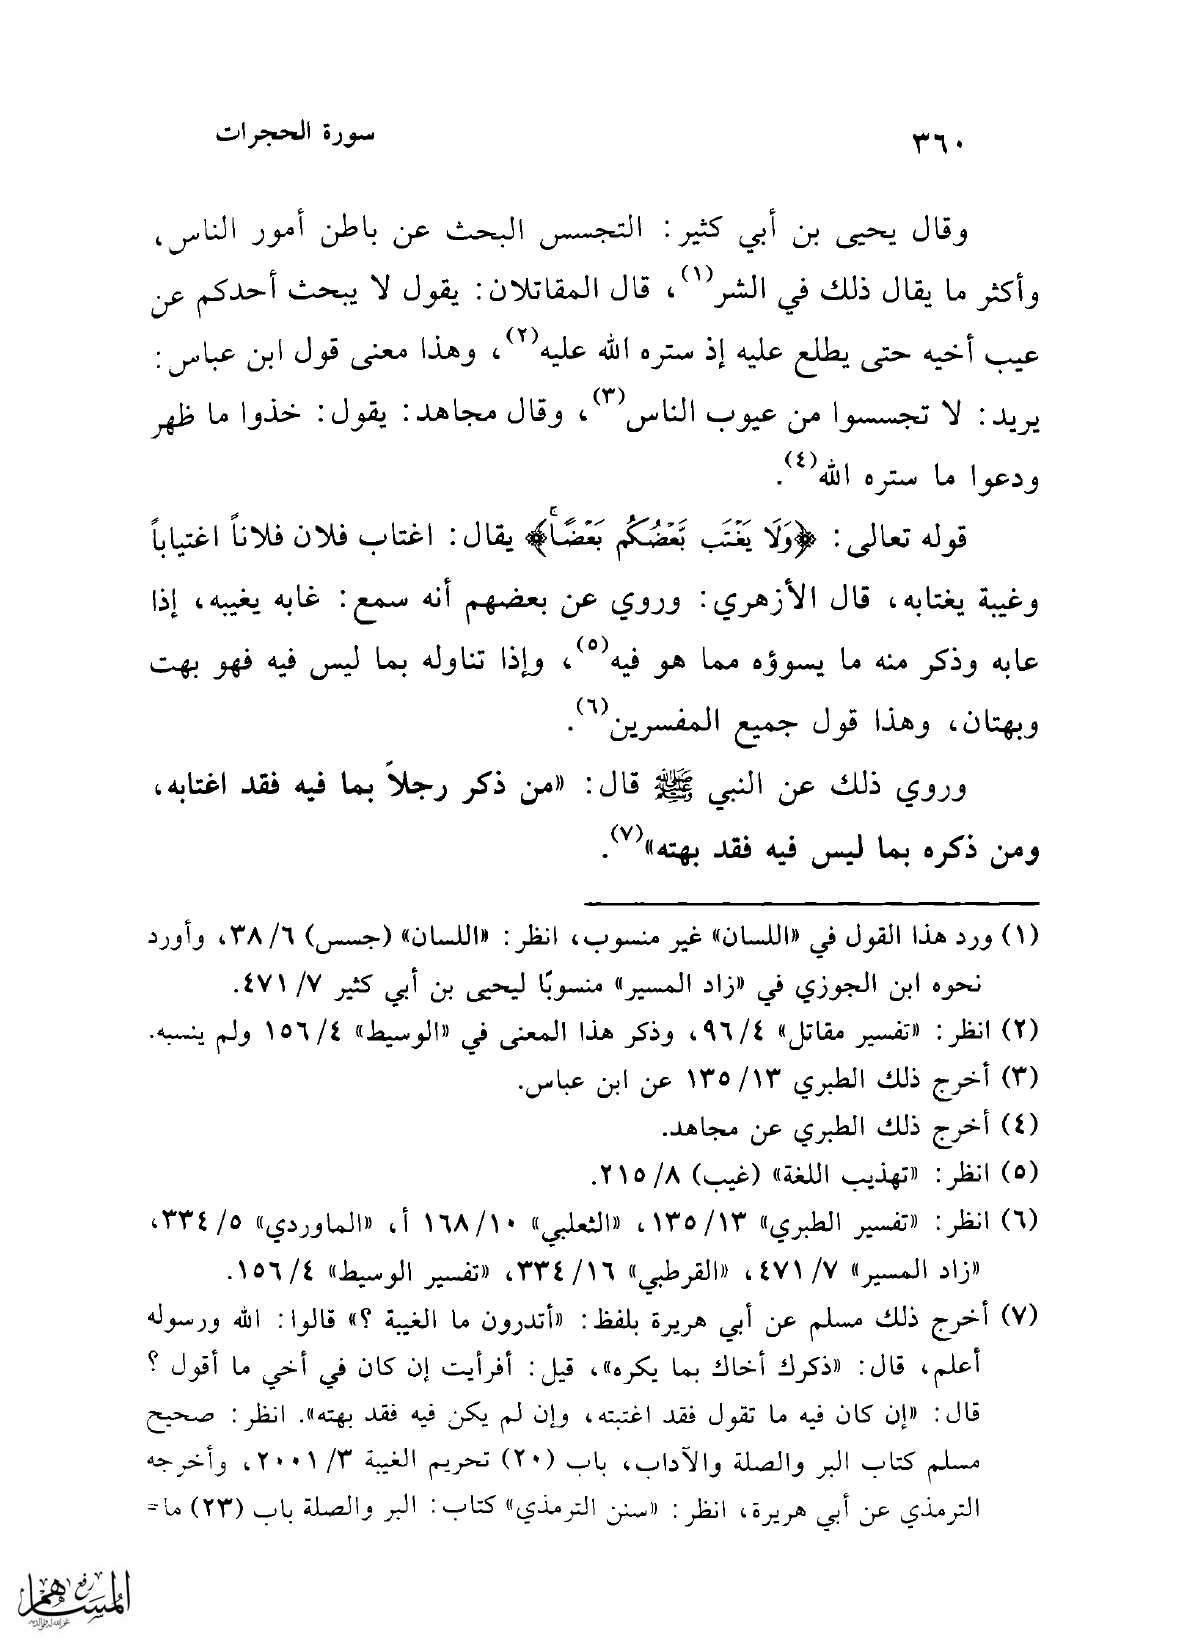 ٣٦٠
سورة الحجرات
وقال يحيى بن أبي كثير: التجسس البحث عن باطن أمور الناس،
وأكثر ما يقال ذلك في الشر(١)، قال المقاتلان: يقول لا يبحث أحدكم عن
عيب أخيه حتى يطلع عليه إذ ستره الله عليه(٢)، وهذا معنى قول ابن عباس:
يريد: لا تجسسوا من عيوب الناس(٣)، وقال مجاهد: يقول: خذوا ما ظهر
ودعوا ما ستره الله(٤).
قوله تعالى: ﴿وَلَا يَغْتَب بَّعْضُكُم بَعْضًاۚ﴾ يقال: اغتاب فلان فلاناً اغتياباً
وغيبة يغتابه، قال الأزهري: وروي عن بعضهم أنه سمع: غابه يغيبه، إذا
عابه وذكر منه ما يسوؤه مما هو فيه(٥)، وإذا تناوله بما ليس فيه فهو بهت
وبهتان، وهذا قول جميع المفسرين(٦).
وروي ذلك عن النبي ﷺ قال: «من ذكر رجلاً بما فيه فقد اغتابه،
ومن ذكره بما ليس فيه فقد بهته»(٧).
(١) ورد هذا القول في «اللسان» غير منسوب، انظر: «اللسان» (جسس) ٦/ ٣٨، وأورد
نحوه ابن الجوزي في «زاد المسير» منسوبًا ليحيى بن أبي كثير ٧/ ٤٧١.
(٢) انظر: «تفسير مقاتل» ٤/ ٩٦، وذكر هذا المعنى في «الوسيط» ٤/ ١٥٦ ولم ينسبه.
(٣) أخرج ذلك الطبري ١٣/ ١٣٥ عن ابن عباس.
(٤) أخرج ذلك الطبري عن مجاهد.
(٥) انظر: «تهذيب اللغة» (غيب) ٨/ ٢١٥.
(٦) انظر: «تفسير الطبري» ١٣/ ١٣٥، «الثعلبي» ١٠/ ١٦٨ أ، «الماوردي» ٥/ ٣٣٤،
«زاد المسير» ٧/ ٤٧١، «القرطبي» ١٦/ ٣٣٤، «تفسير الوسيط» ٤/ ١٥٦.
(٧) أخرج ذلك مسلم عن أبي هريرة بلفظ: «أتدرون ما الغيبة ؟» قالوا: الله ورسوله
أعلم، قال: «ذكرك أخاك بما يكره»، قيل: أفرأيت إن كان في أخي ما أقول ؟
قال: «إن كان فيه ما تقول فقد اغتبته، وإن لم يكن فيه فقد بهته». انظر: صحيح
مسلم كتاب البر والصلة والآداب، باب (٢٠) تحريم الغيبة ٣/ ٢٠٠١، وأخرجه
الترمذي عن أبي هريرة، انظر: «سنن الترمذي» كتاب: البر والصلة باب (٢٣) ما=
رفع
المساهم